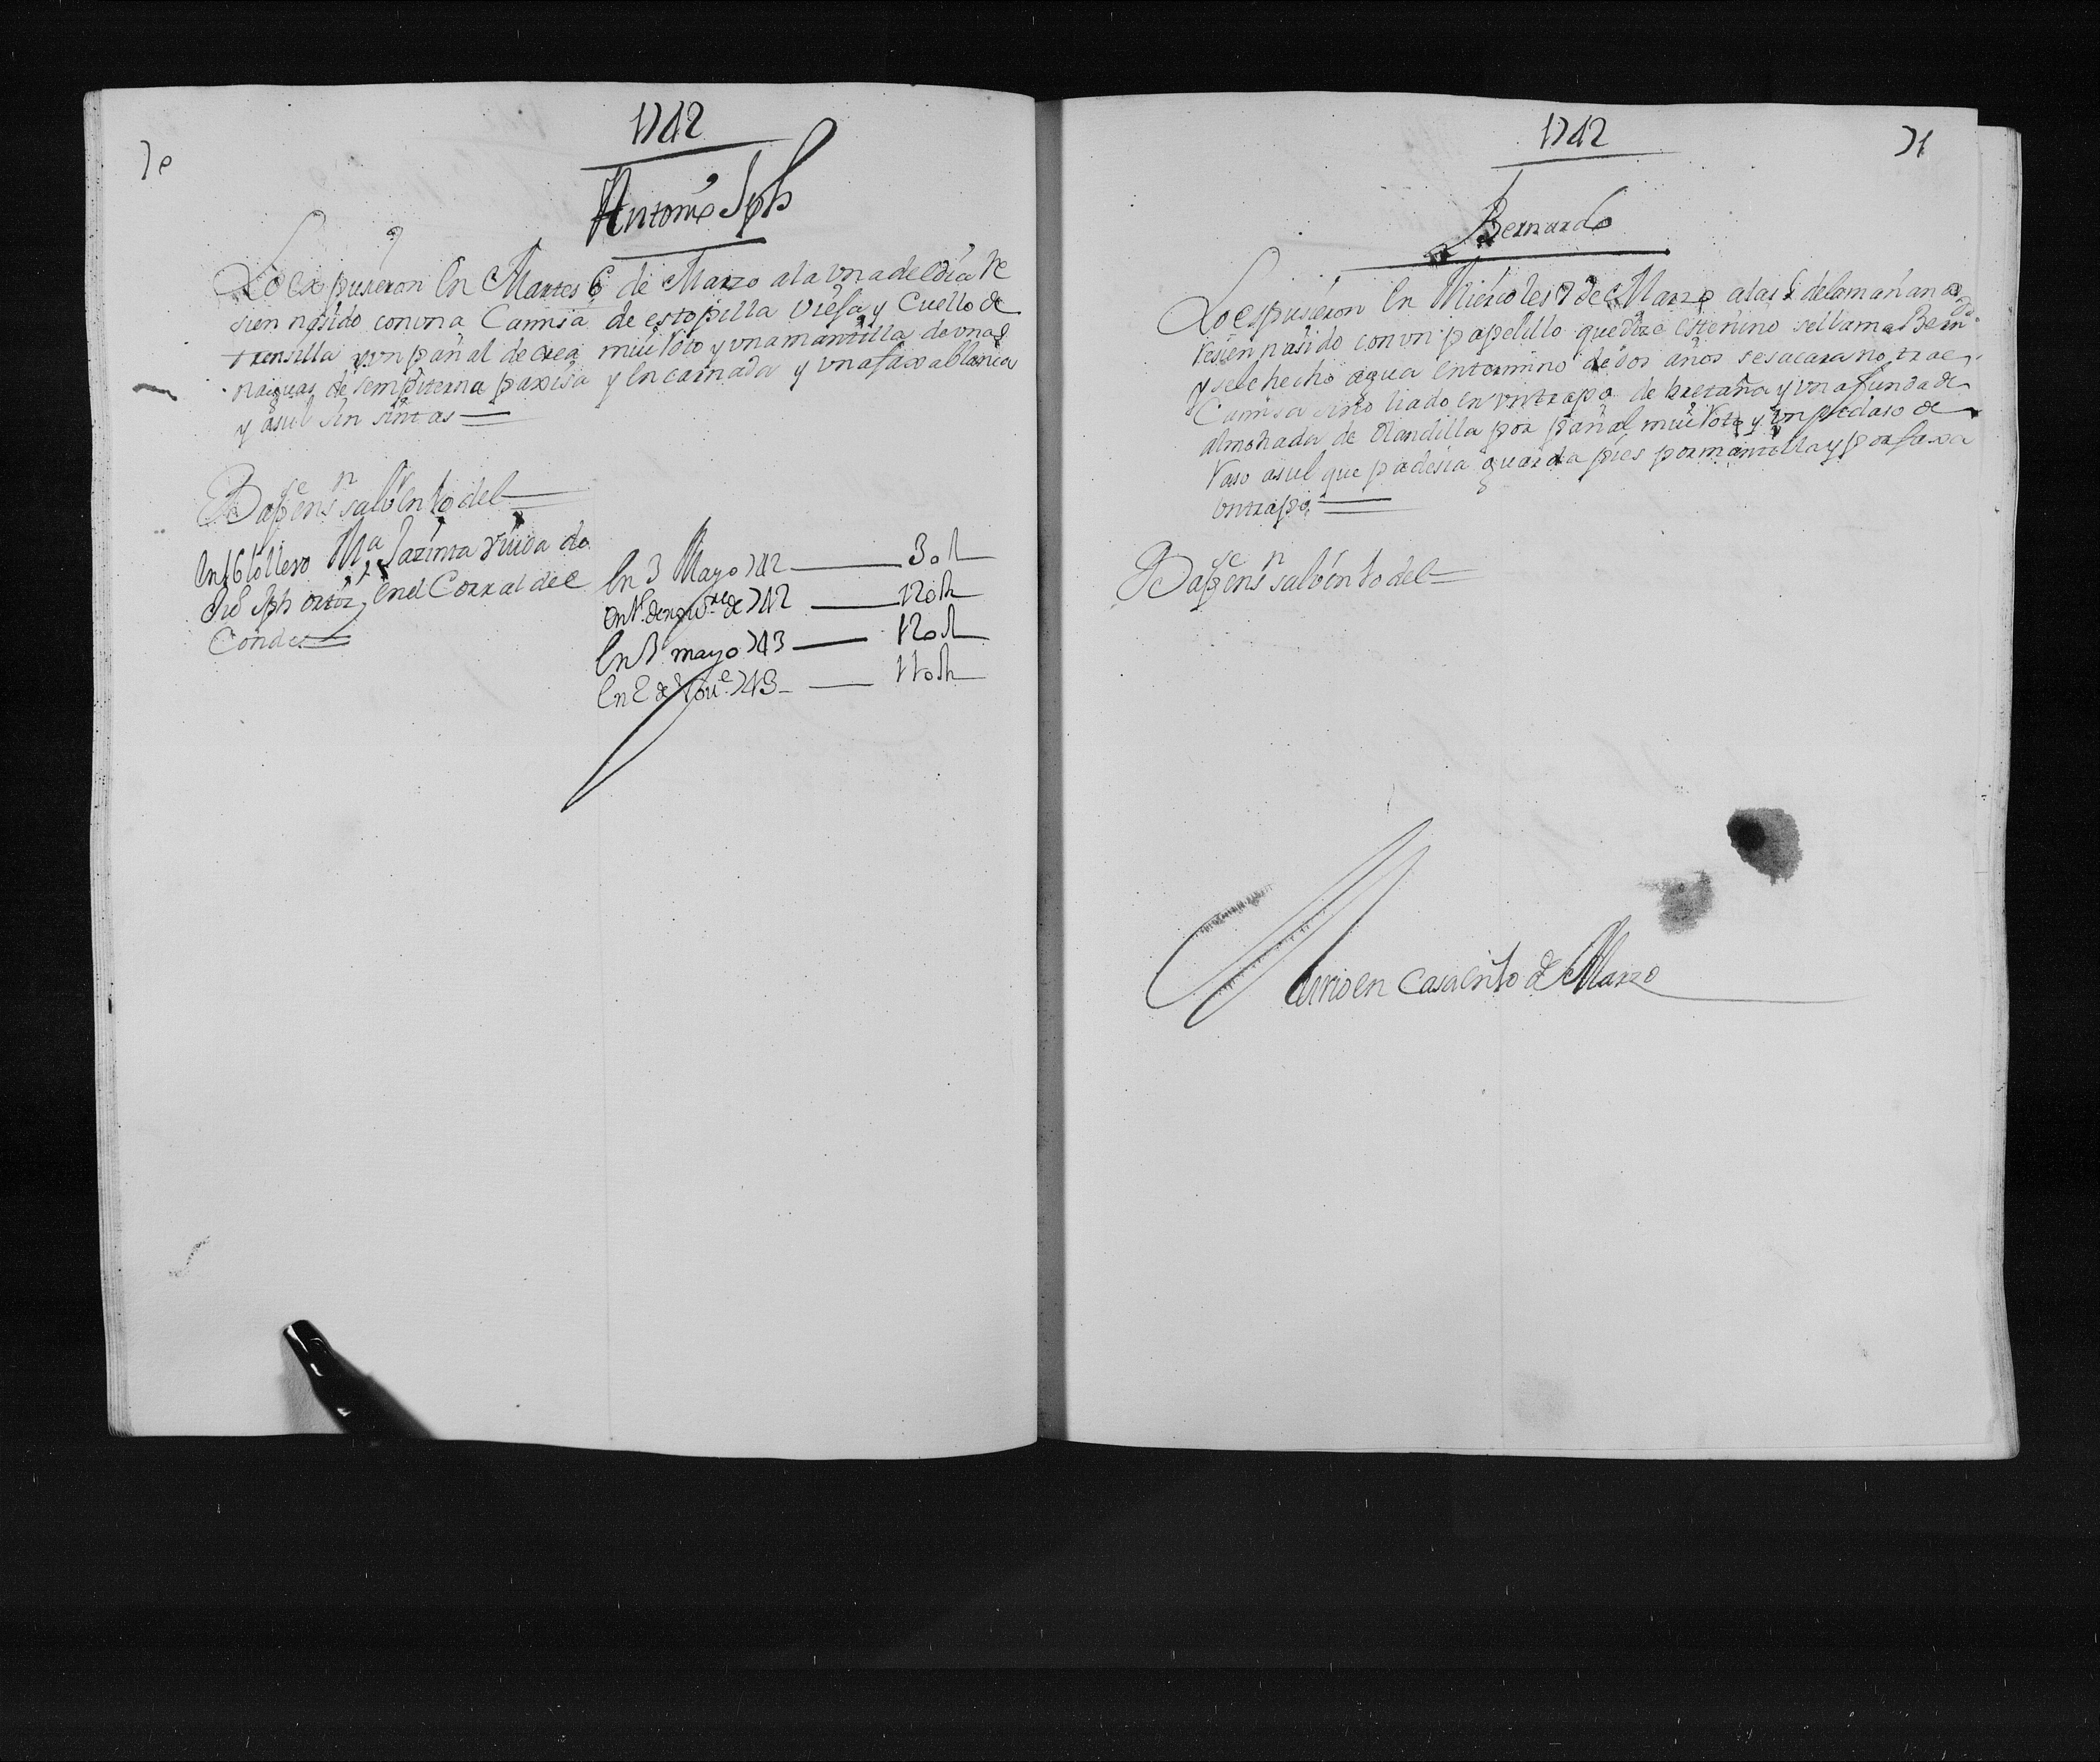 1742
70
Antonio Jph
Lo expusieron en Martes 6 de Marzo a la vna de el dia Re
sien nasido con vna Camisa de estopilla viesa y Cuello de
trensilla y vn pañal de crea mui Roto y vna mantilla de vnas
naguas de sempiterna paxisa y encarnada y vna faxa blanca
y asul sin sintas
Bapse en Sn Salbr en 10 del
en 16 lo llevo Ma Jazinta viuda de
Jph ortiz en el Corral del
Conde
en 3 Mayo 742 30 R
en de nove de 742 120 R
en 3 mayo 743 120 R
en 2 de Nove 743 110 R
1742
71
Bernardo
Lo espusieron en Miercoles 7 de Marzo a las de la mañana
Resien nasido con vn papelillo que dize este niño se llama Bernardo
y se le hecho agua en termino de dos años se sacara no trae
Camisa sino liado en vn trapo de bretaña y vna funda de
almohada de Olandilla por pañal mui Roto y vn pedaso de
Raso asul que padesia guarda pies por mantilla y por faxa
vn trapo
Bapse en Sn Salbr en 10 del
Murio en Casa en 10 de Marzo